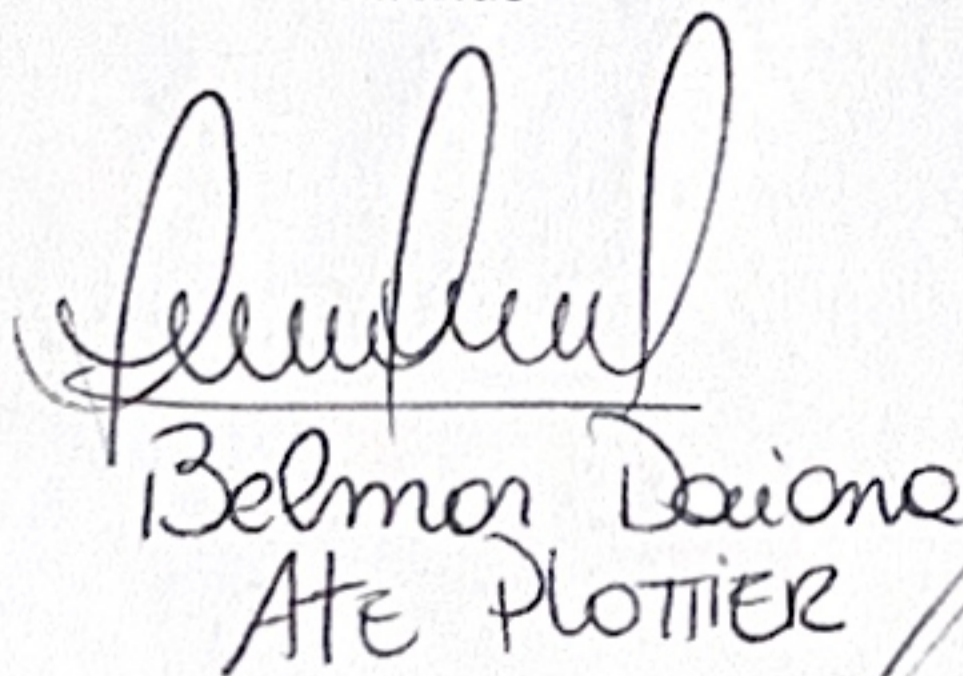 Belmar Daiana
Ate PLOTTIER